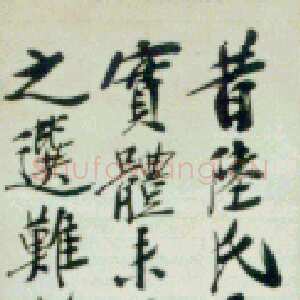 昔陸氏
寶體未
之選難